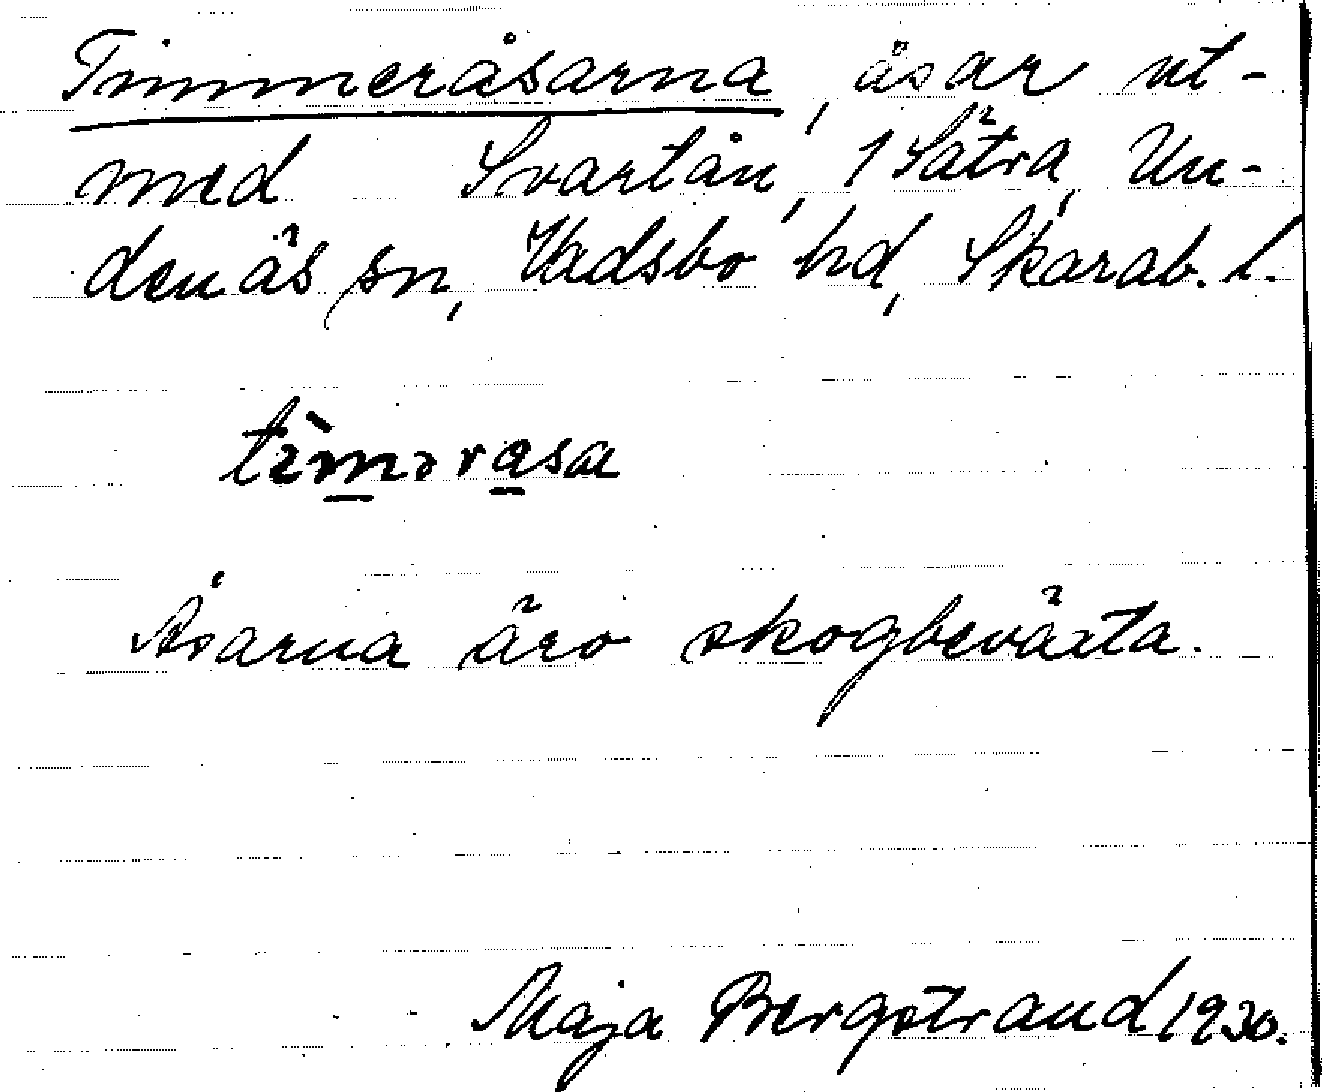 Timmeråsarna, åsar ut-
med Svartån, 1 Sätra, Un-
denäs sn, Vadsbo hd, Skarab. l.
tìmərasa
Åsarna äro skogbeväxta.
Maja Bergstrand 1930.